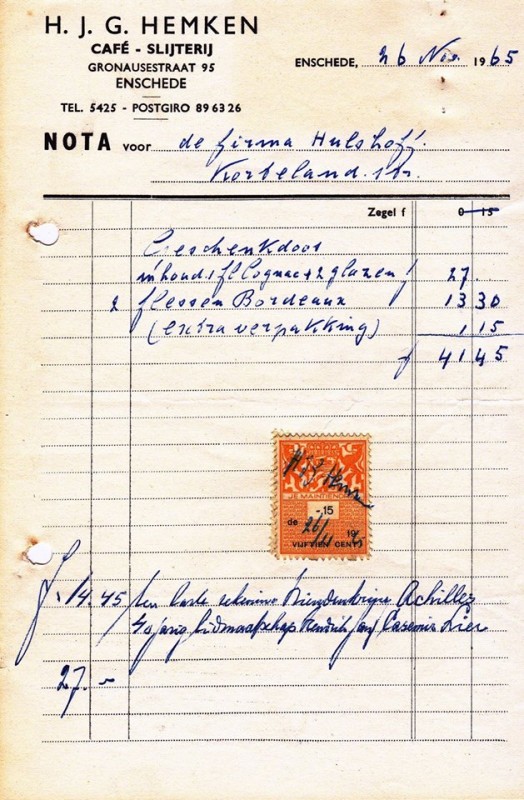 H. J. G. HEMKEN
CAFÉ - SLIJTERIJ
GRONAUSESTRAAT 95
ENSCHEDE
TEL. 5425 - POSTGIRO 896326
ENSCHEDE, 26 Nov. 1965
NOTA voor de firma Hulshoff.
str.
Zegel f 0 15
Geschenkdoos
inhoud 1 fl Cognac + 2 glazen f 27.
2 flessen Bordeaux 13 30
(extra verpakking) 1 15
f 41 45
JE MAINTIENDRAI
-.15
de 26/11 19
VIJFTIEN CENT
f. 14.45 Achilles
40 jarig lidmaatschap
27.-